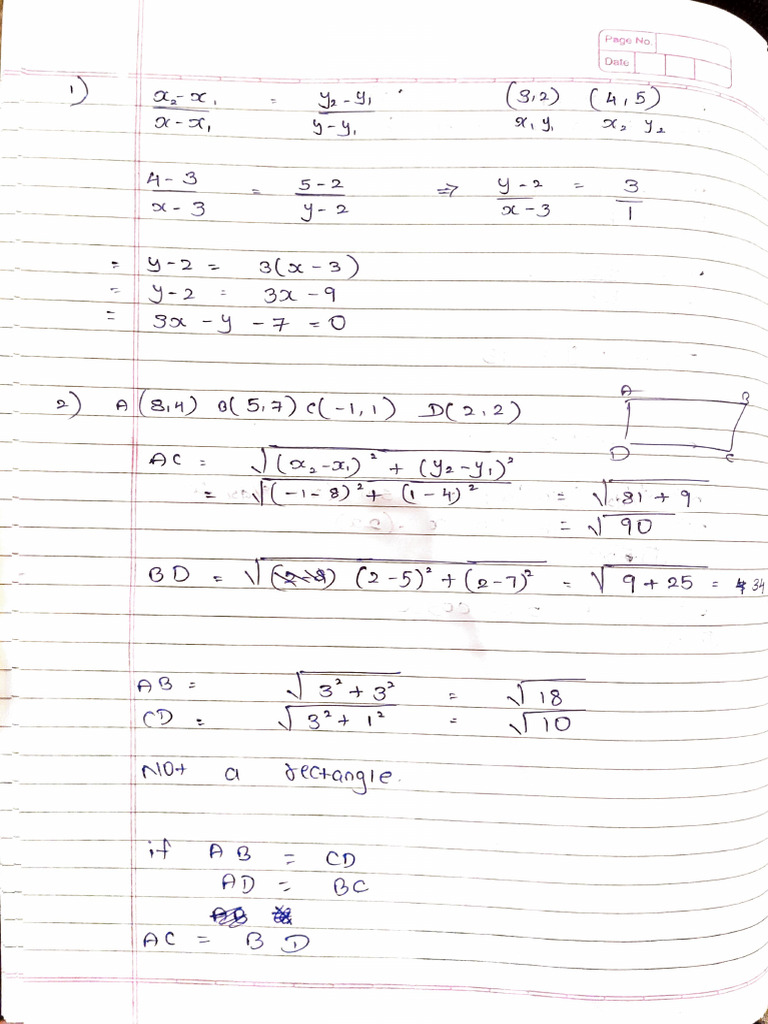 Page No.
Date
1) x₂-x₁/x-x₁ = y₂-y₁/y-y₁ (3,2) (4,5)
x₁ y₁ x₂ y₂
4-3/x-3 = 5-2/y-2 ⇒ y-2/x-3 = 3/1
= y-2 = 3(x-3)
= y-2 = 3x-9
= 3x-y-7=0
2) A(8,4) B(5,7) C(-1,1) D(2,2)
A B
D C
AC = √(x₂-x₁)²+(y₂-y₁)²
= √(-1-8)²+(1-4)² = √81+9
= √90
BD = √(2-5)²+(2-7)² = √9+25 = 34
AB = √3²+3² = √18
CD = √3²+1² = √10
Not a rectangle.
if AB = CD
AD = BC
AC = BD